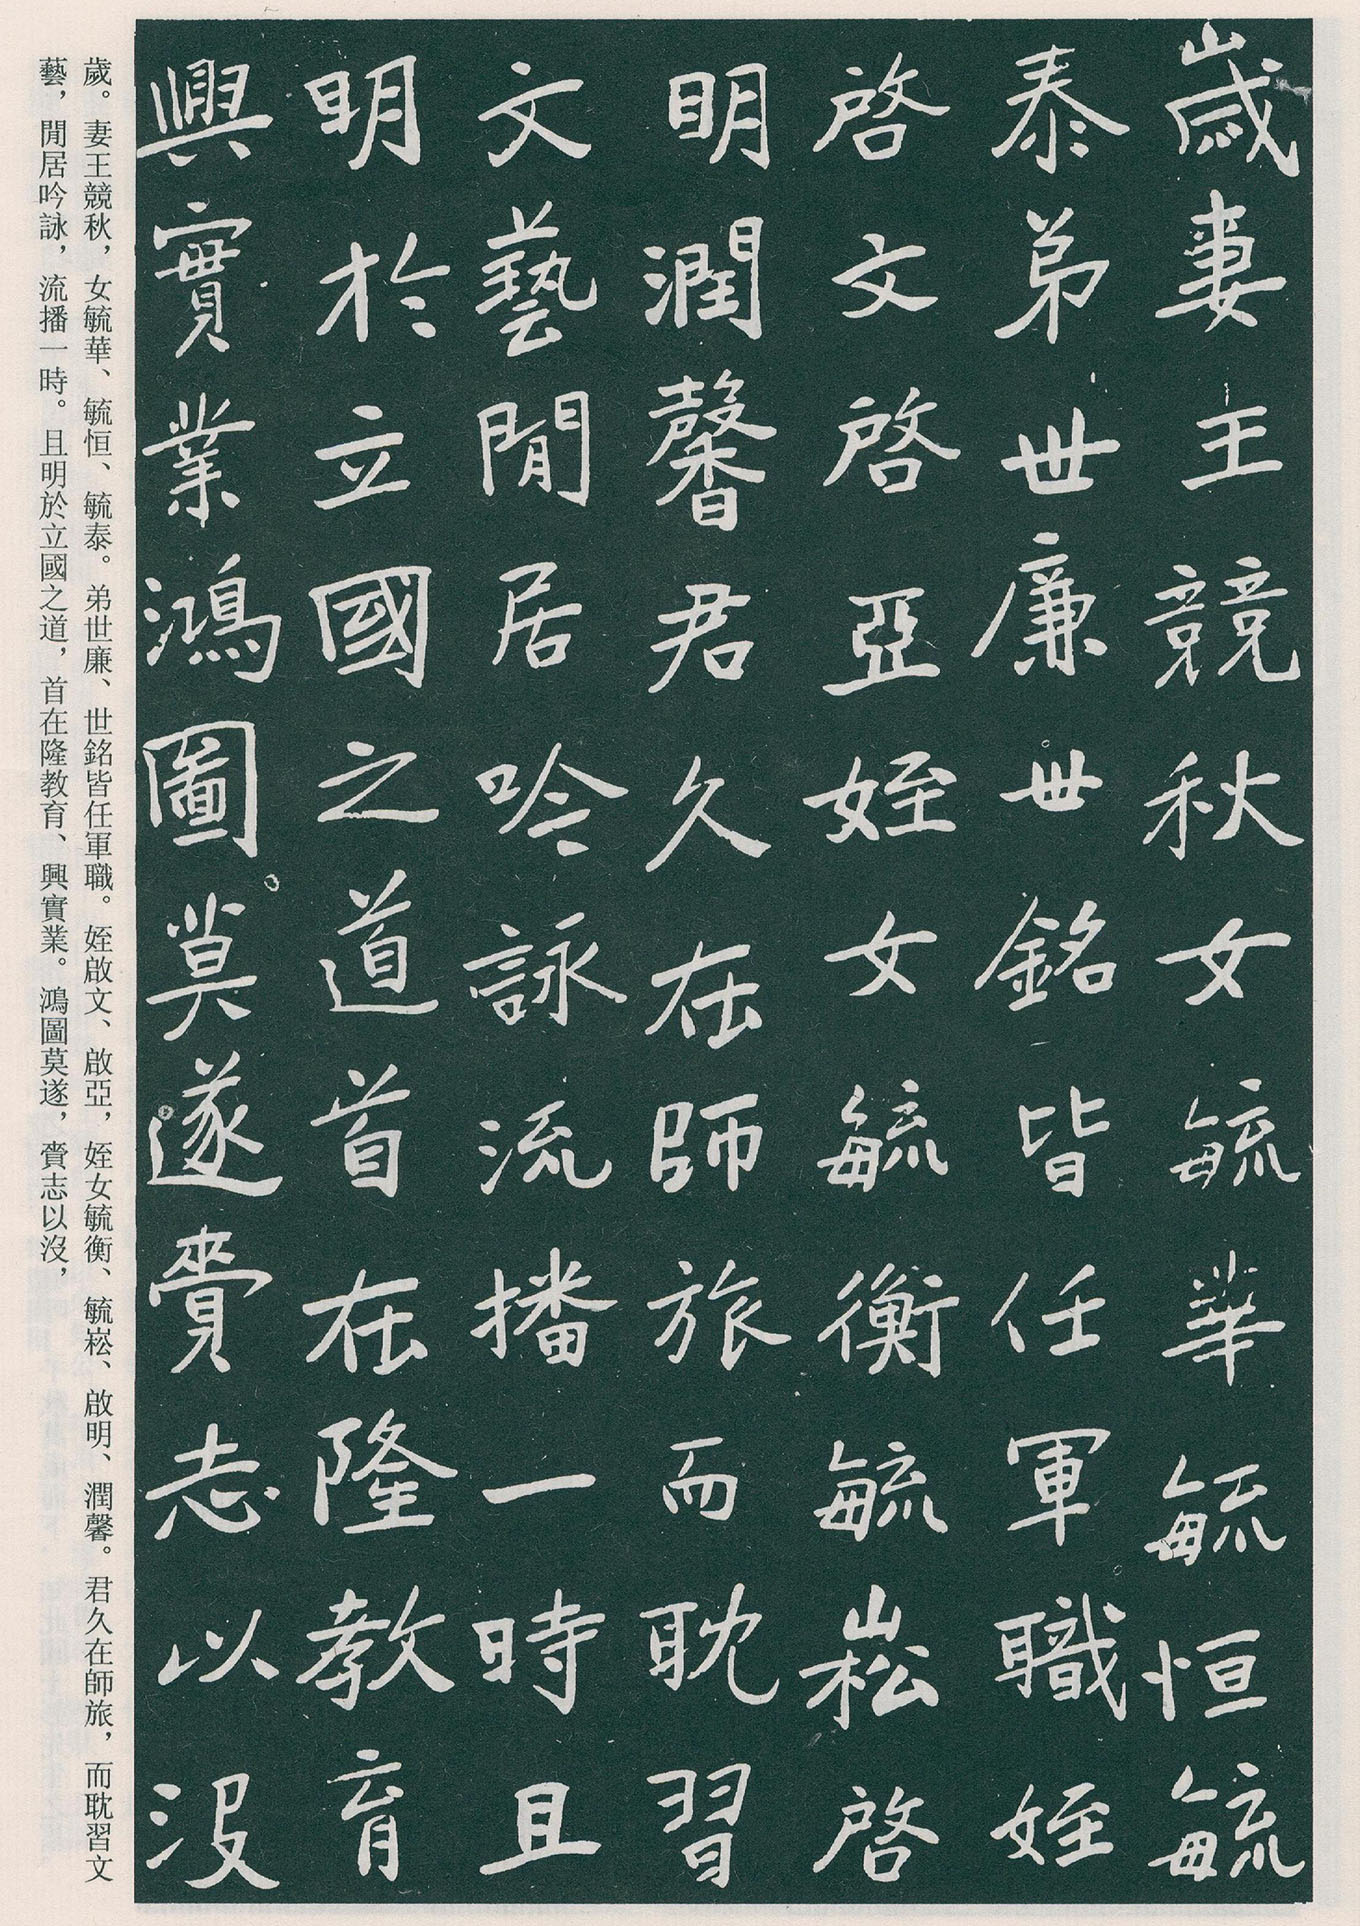 歲妻王競秋女毓華毓恒毓
泰弟世廉世銘皆任軍職姪
啓文啓亞姪女毓衡毓崧啓
明潤馨君久在師旅而耽習
文藝閒居吟詠流播一時且
明於立國之道首在隆教育
興實業鴻圖莫遂賫志以沒
歲。妻王競秋，女毓華、毓恒、毓泰。弟世廉、世銘皆任軍職。姪啟文、啟亞，姪女毓衡、毓崧、啟明、潤馨。君久在師旅，而耽習文
藝，閒居吟詠，流播一時。且明於立國之道，首在隆教育、興實業。鴻圖莫遂，賫志以沒，